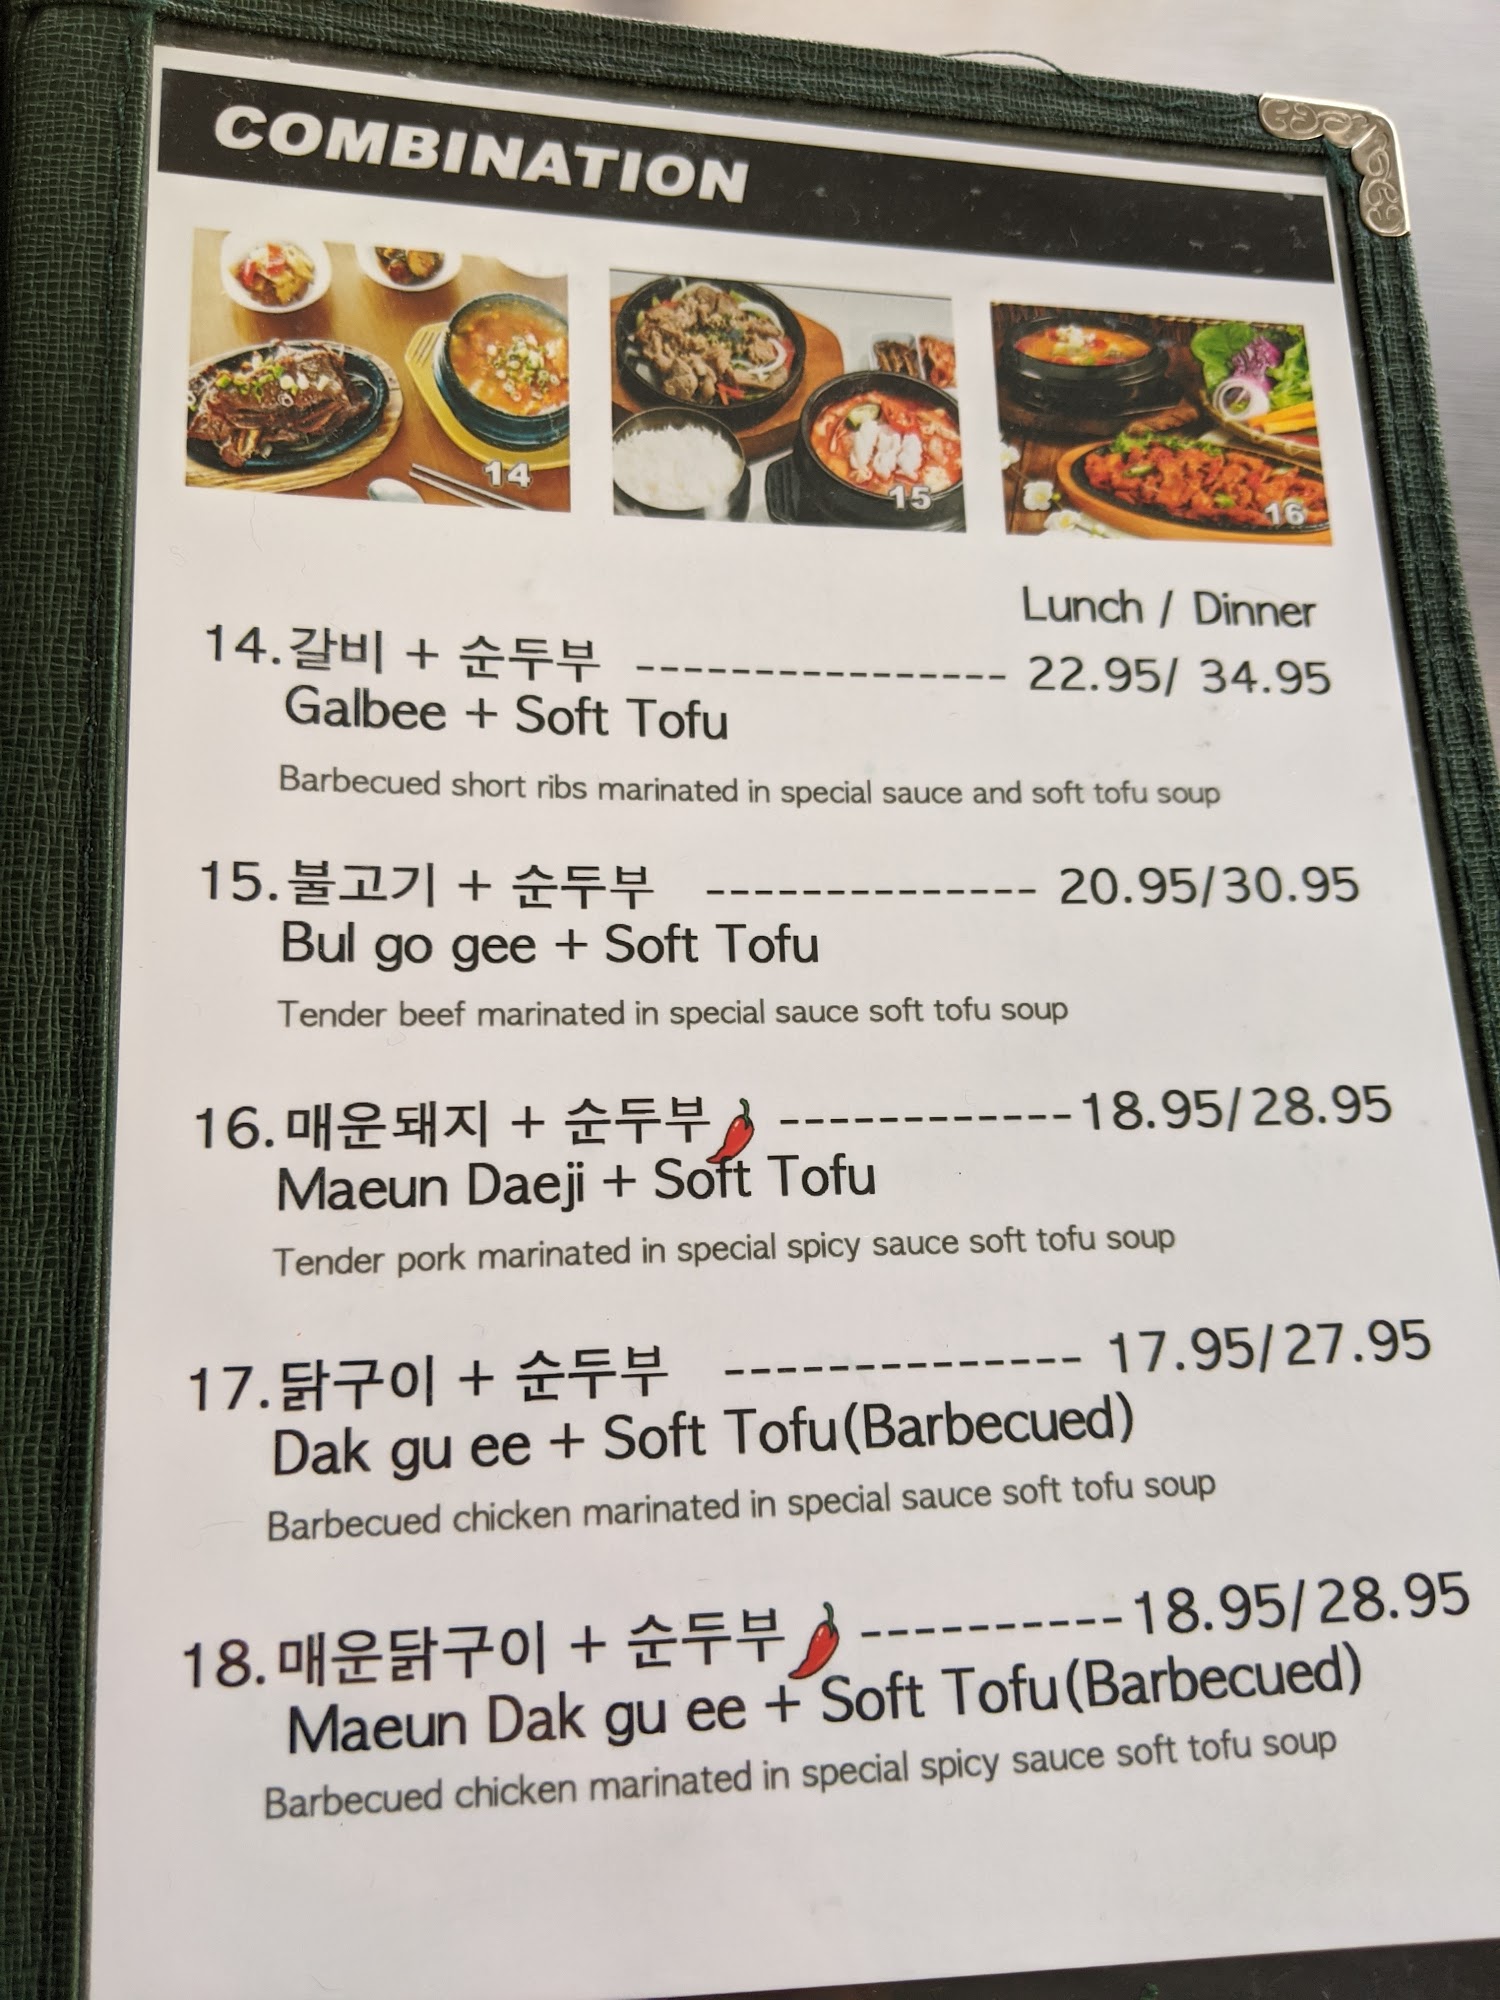 COMBINATION
14
15
16
Lunch / Dinner
14.갈비 + 순두부 ---------------- 22.95/ 34.95
Galbee + Soft Tofu
Barbecued short ribs marinated in special sauce and soft tofu soup
15.불고기 + 순두부 -------------- 20.95/30.95
Bul go gee + Soft Tofu
Tender beef marinated in special sauce soft tofu soup
16.매운돼지 + 순두부 ------------18.95/28.95
Maeun Daeji + Soft Tofu
Tender pork marinated in special spicy sauce soft tofu soup
17.닭구이 + 순두부 -------------- 17.95/27.95
Dak gu ee + Soft Tofu(Barbecued)
Barbecued chicken marinated in special sauce soft tofu soup
18.매운닭구이 + 순두부 ----------18.95/28.95
Maeun Dak gu ee + Soft Tofu(Barbecued)
Barbecued chicken marinated in special spicy sauce soft tofu soup